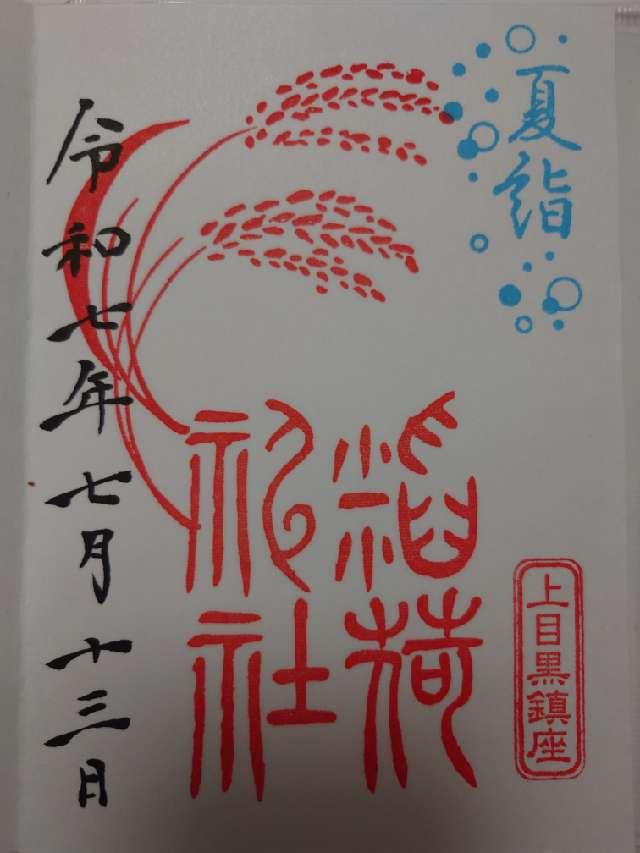 夏詣
上目黒鎮座
稲荷
祠社
令和七年七月十三日